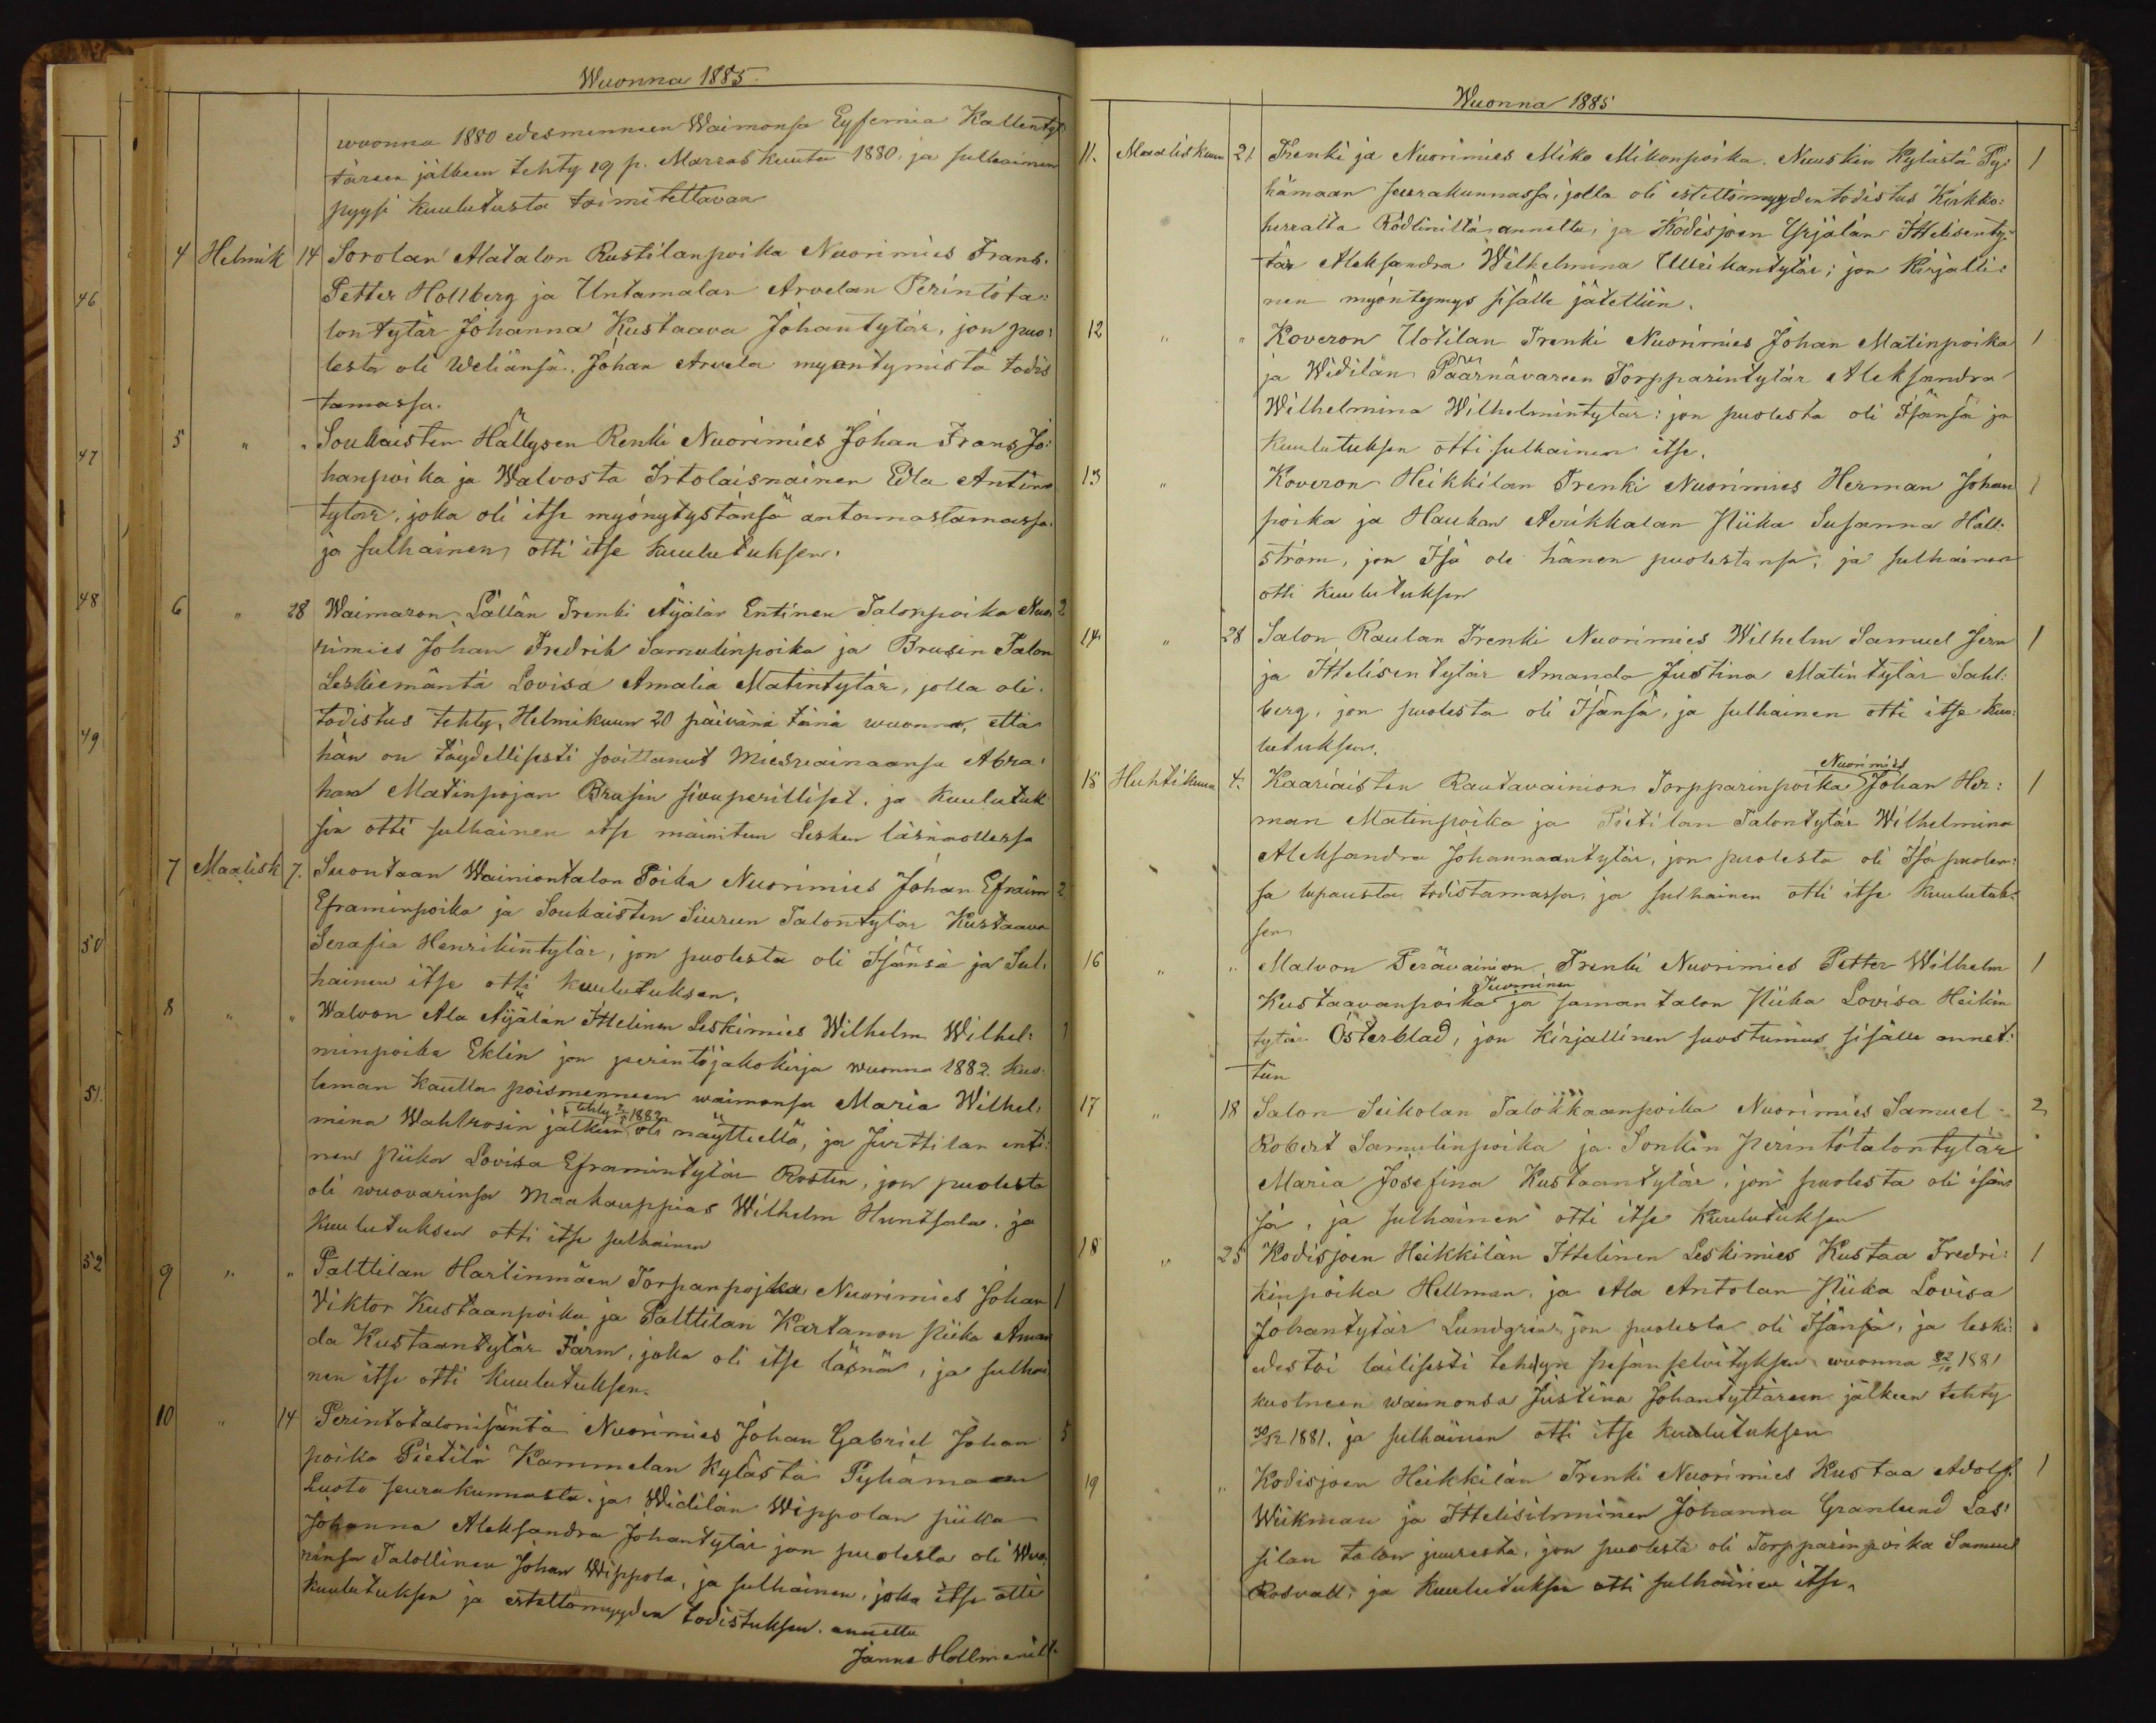 Wuonna 1885.
wuonna 1880 edesmenneen Waimonsa Eyfemia Kallentyt
täreen jälkeen tehty 19 p. Marraskuuta 1880, ja sulhainen
pyysi kuulutusta toimitettavan
4 Helmik 14 Sorolan Alatalon Rustilanpoika Nuorimies Frans.
Petter Hollberg ja Untamalan Arvelan Perintöta:
lontytär Johanna Kustaava Johantytär, jon puo:
lesta oli Weliänsä Johan Arvela myöntymistä todis
tamassa.
5 " " Soukaisten Hällysen Renki Nuorimies Johan Frans Jo:
hanpoika ja Walvosta Irtolaisnainen Edla Antin
tytär, joka oli itse myönytystänsä antamastamassa,
ja sulhainen otti itse kuulutuksen.
6 " 28 Waimaron Lällän Trenki Äyälän Entinen Talonpoika Nuo 2
rimies Johan Fredrik Samulinpoika ja Brusin Talon
Leskiemäntä Lovisa Amalia Matintytär, jolla oli
todistus tehty, Helmikuun 20 päivänä tänä wuonna, että
hän on täydellisesti sovittanut Miesvainaansa Abra:
ham Matinpojan Brusin sivuperilliset, ja kuulutuk
sen otti sulhainen itse mainitun Lesken läsnäollessa
7 Maalisk 7. Suontaan Wainiontalon Poika Nuorimies Johan Efraim 2
Eframinpoika ja Soukaisten Siuren Talontytär Kustaava
Serafia Henrikintytär, jon puolesta oli Isänsä ja Sul:
hainen itse otti kuulutuksen.
8 " " Walvon Ala Äyälän Ittelinen Leskimies Wilhelm Wilhel: 1
minpoika Eklin jon perintöjakokirja wuonna 1882. kuo:
leman kautta poismenneen waimonsa Maria Wilhel:
tehty 1882
mina Wahlrosin jälkeen oli näytteellä, ja Jurttilan enti:
nen Piika Lovisa Eframintytär Rosten, jon puolesta
oli wuovarinsa Maakauppias Wilhelm Huntsala, ja
kuulutuksen otti itse sulhainen
9 " " Palttilan Harlinmäen Torpanpojka Nuorimies Johan 1
Viktor Kustaanpoika ja Palttilan Kartanon Piika Aman
da Kustaantytär Färm, joka oli itse läsnä, ja sulhai
nen itse otti kuulutuksen.
10 " 14 Perintotalonisäntä Nuorimies Johan Gabriel Johan 5
poika Pietilä Kammelan kylästä Pyhämaan
Luoto seurakunnasta ja Widilän Wippolan piika
Johanna Aleksandra Johantytär jon puolesta oli Wuo
rinsa Talollinen Johan Wippola, ja sulhainen, joka itse otti
kuulutuksen ja estettömyyden todistuksen. annettu
Janne Hollmenilt.
46
47
48
49
50
51.
52
Wuonna 1885
11. Maaliskuun 21 Trenki ja Nuorimies Mike Mikonpoika. Nuuskin Kylästä Py: 1
hämaan seurakunnassa, jolla oli estettömyydentodistus Kirkko:
herralta Rödliniltä annettu, ja Kodisjoen Yrjälän Ittelisenty:
tär Aleksandra Wilhelmina Ullrikantytär; jon kirjalli:
nen myöntymys sisälle jätettiin.
12 " " Koveron Uotilan Trenki Nuorimies Johan Matinpoika 1
ja Widilän Päärnävareen Torpparintytär Aleksandra
Wilhelmina Wilhelmintytär: jon puolesta oli Isänsä ja
kuulutuksen otti sulhainen itse.
13 " Koveron Heikkilan Trenki Nuorimies Herman Johan 1
poika ja Haukan Aerikkalan Piika Susanna Häll:
ström, jon Isä oli hänen puolestansa, ja sulhainen
otti kuulutuksen
14 " 28 Salon Raulan Trenki Nuorimies Wilhelm Samuel Jern 1
ja Ittelisentytär Amanda Justina Matintytär Sahl:
berg, jon puolesta oli Isänsä, ja sulhainen otti itse kuu:
lutuksen.
Nuorimies
15 Huhtikuun 4. Kaariaisten Rautavainion Torpparinpoika Johan Her: 1
man Matinpoika ja Pietilan Talontytär Wilhelmina
Aleksandra Johannaantytär, jon puolesta oli Isä puolen:
sa lupausta todistamassa, ja sulhainen otti itse kuulutuk:
sen
16 " " Malvon Perävainion Trenki Nuorimies Petter Wilhelm 1
Tuominen
Kustaavanpoika ja saman talon Piika Lovisa Heikin
tytär Österblad, jon kirjallinen suostumus sisälle annet:
tiin
17 " 18 Salon Seikolan Talokkaanpoika Nuorimies Samuel 2
Robert Samulinpoika ja Sonkin Perintötalontytär
Maria Josefina Kustaantytär, jon puolesta oli isän
sä, ja sulhainen otti itse kuulutuksen
18 " 25 Kodisjoen Heikkilän Ittelinen Leskimies Kustaa Fredri: 1
kinpoika Hellman, ja Ala Antolan Piika Lovisa
Johantytär Lundgrén jon puolesta oli Isänsä, ja leski:
edestoi lailisesti tehdyn pesänselvityksen wuonna 22/10 1881
kuolneen waimonsa Justina Johantyttäreen jälkeen tehty
30/12 1881. ja sulhainen otti itse kuulutuksen
19 " Kodisjoen Heikkilän Trenki Nuorimies Kustaa Adolf. 1
Wikman ja Ittelisihminen Johanna Granlund Las:
silan talon juuresta, jon puolesta oli Torpparinpoika Samuel
Rosvall: ja kuulutuksen otti sulhainen itse.